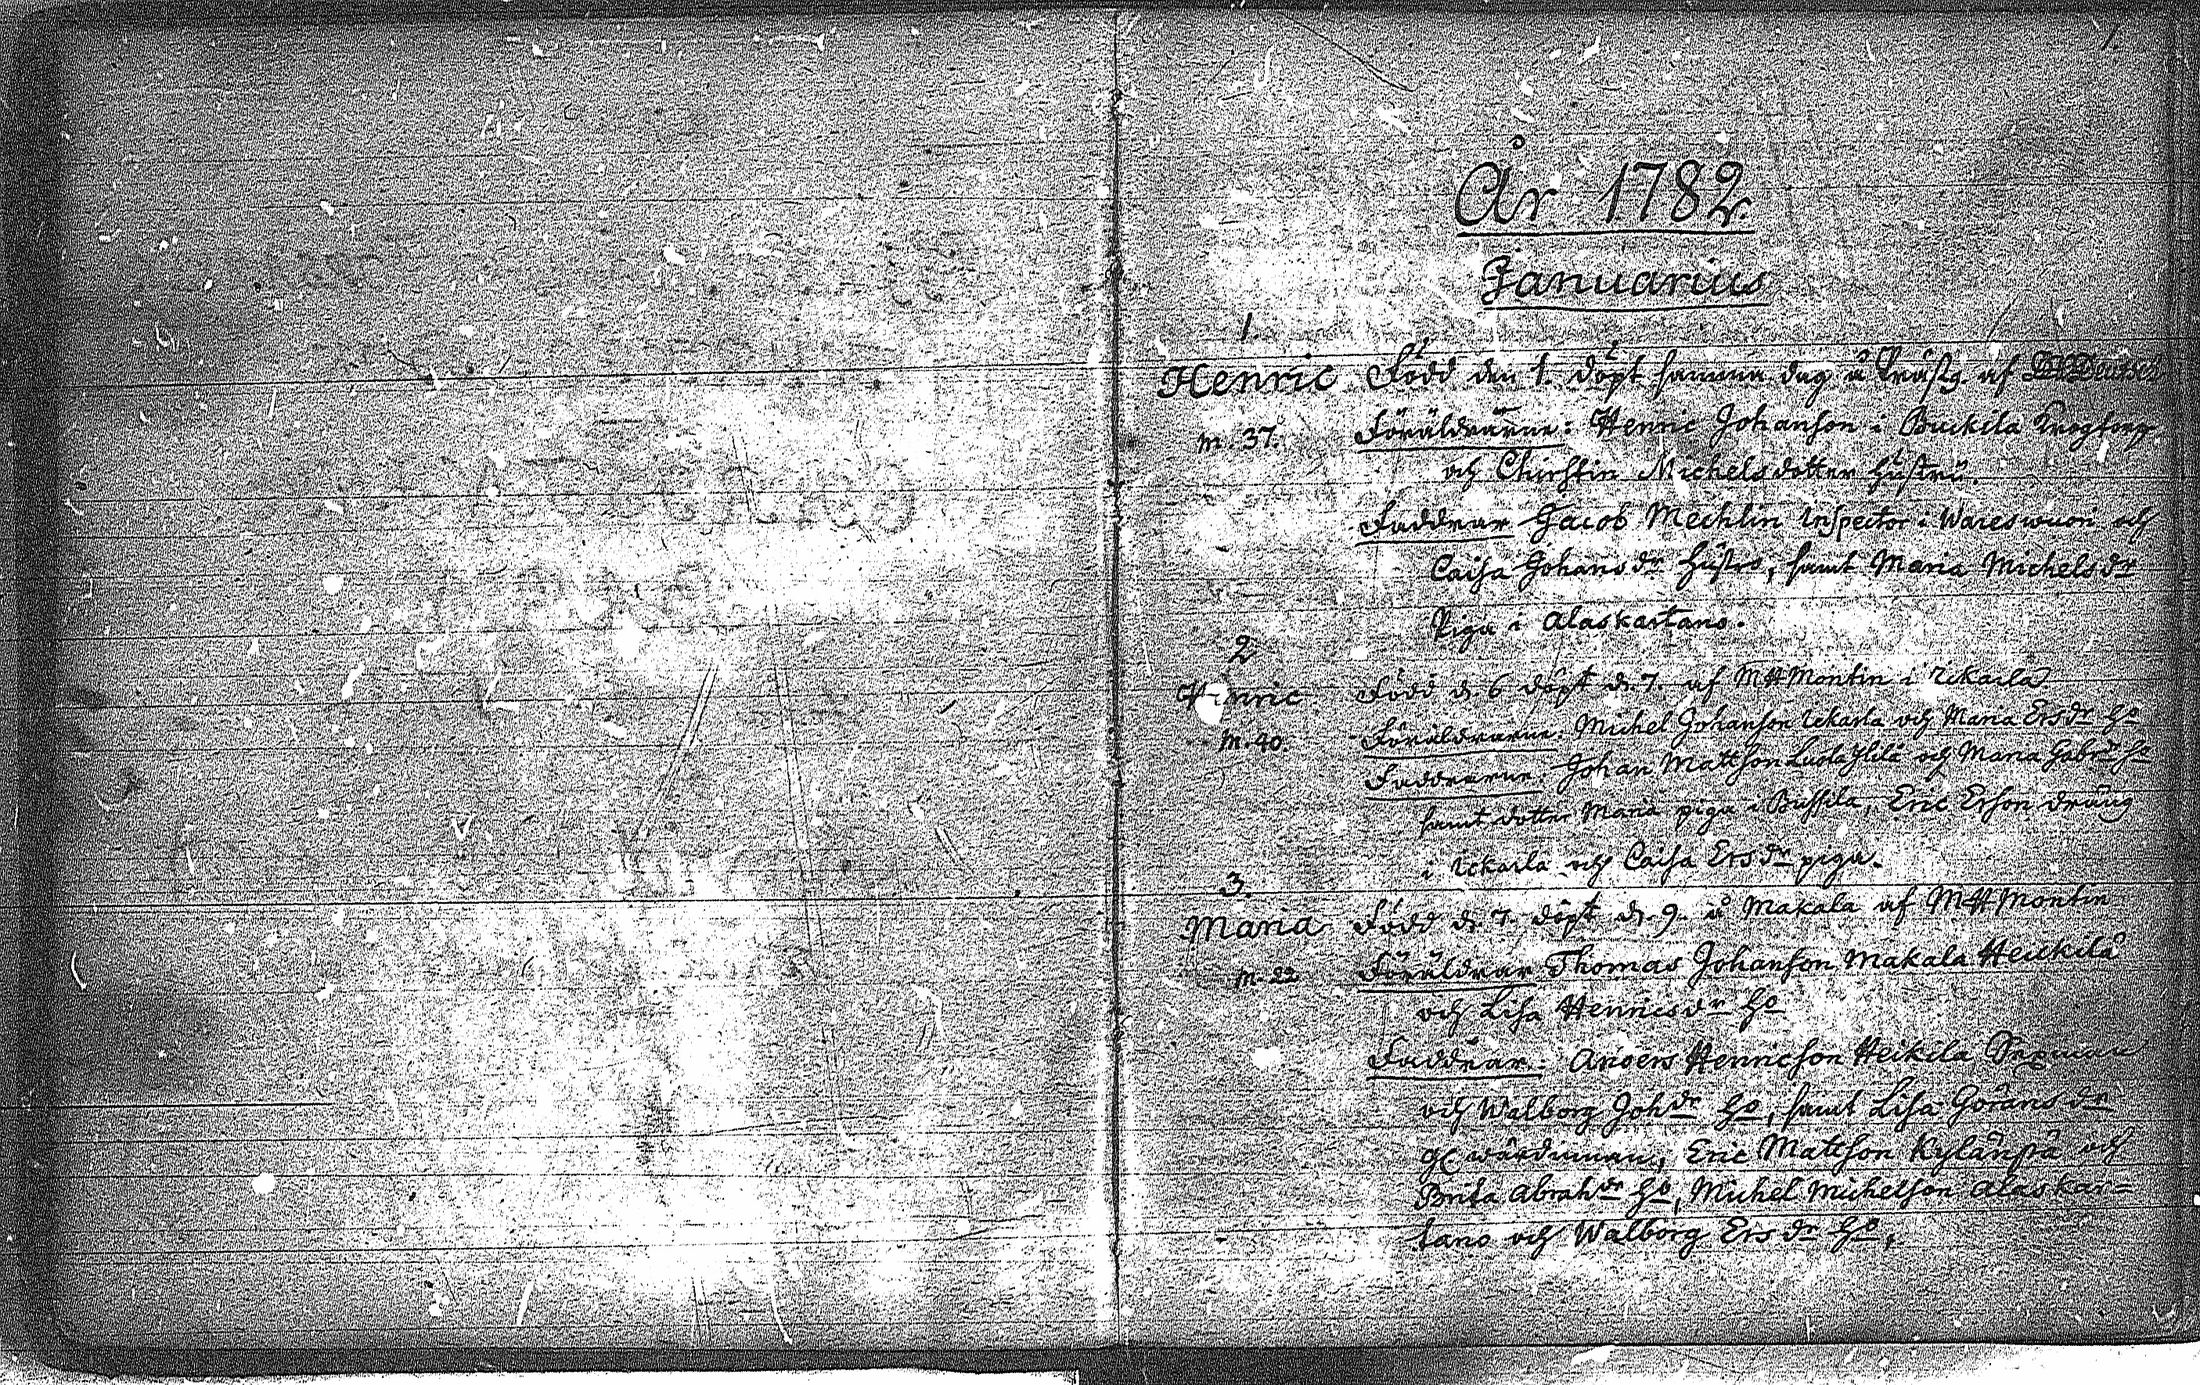 1.
År 1782.
Januarius
1.
Henric Född den 1. döpt samma dag å Prästg. af
m. 37. Föräldrarne: Henric Johanson i Buckila
och Chirstin Michelsdotter hustru.
Faddrar Jacob Mechlin Inspector i Wareswuori och
Caisa Johansdr hustro, samt Maria Michelsdr
Piga i Alaskartano.
2
Henric Född d. 6 döpt d. 7. af Mr Montin i Uckarla
m. 40. Föräldrarne. Michel Johanson Uckarla och Maria Ersdr ho
Faddrarne. Johan Mattson och Maria Gabrdr ho
samt dotter Maria piga i Eric Erson dräng
i Uckarla och Caisa Ersdr piga.
3.
Maria Född d. 7 döpt d. 9. å Makala af Mr Montin
m. 22 Föräldrar Thomas Johanson Makala Heickilä
och Lisa Henricsdr ho
Faddrar. Anders Henricson Heikila
och Walborg Johdr ho, samt Lisa Göransdr
wärdinnan, Eric Mattson Kylänpä och
Brita Abrahdr ho, Michel Michelson Alaskar=
tano och Walborg Ersdr ho,